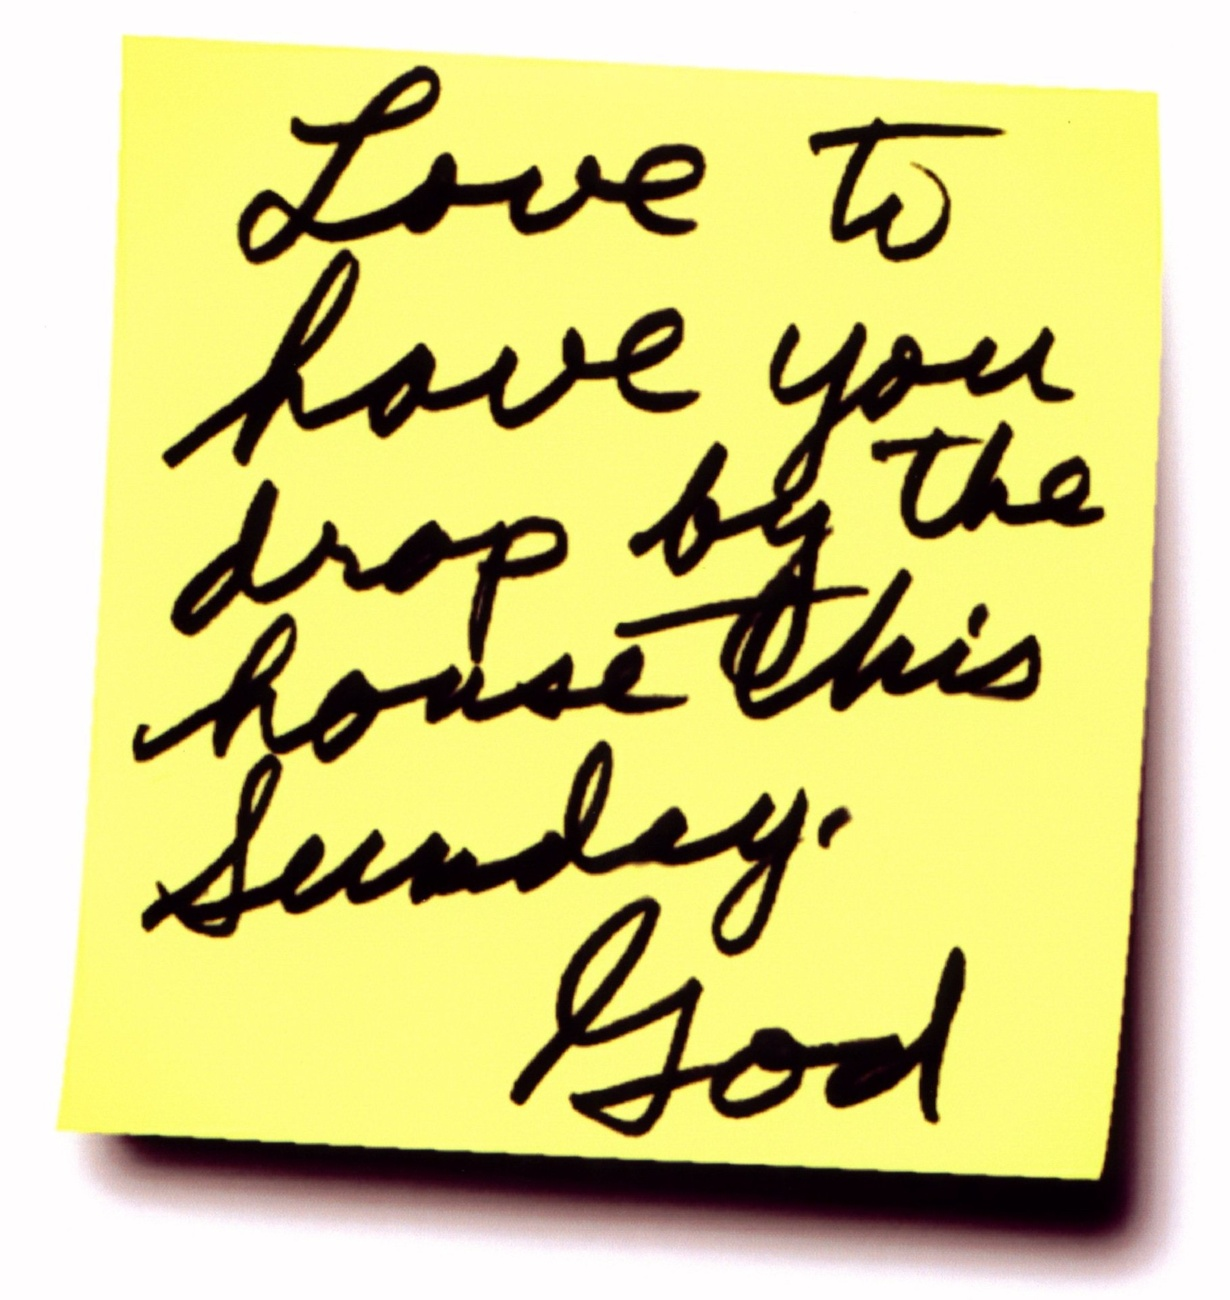 Love to
have you
drop by the
house this
Sunday.
God